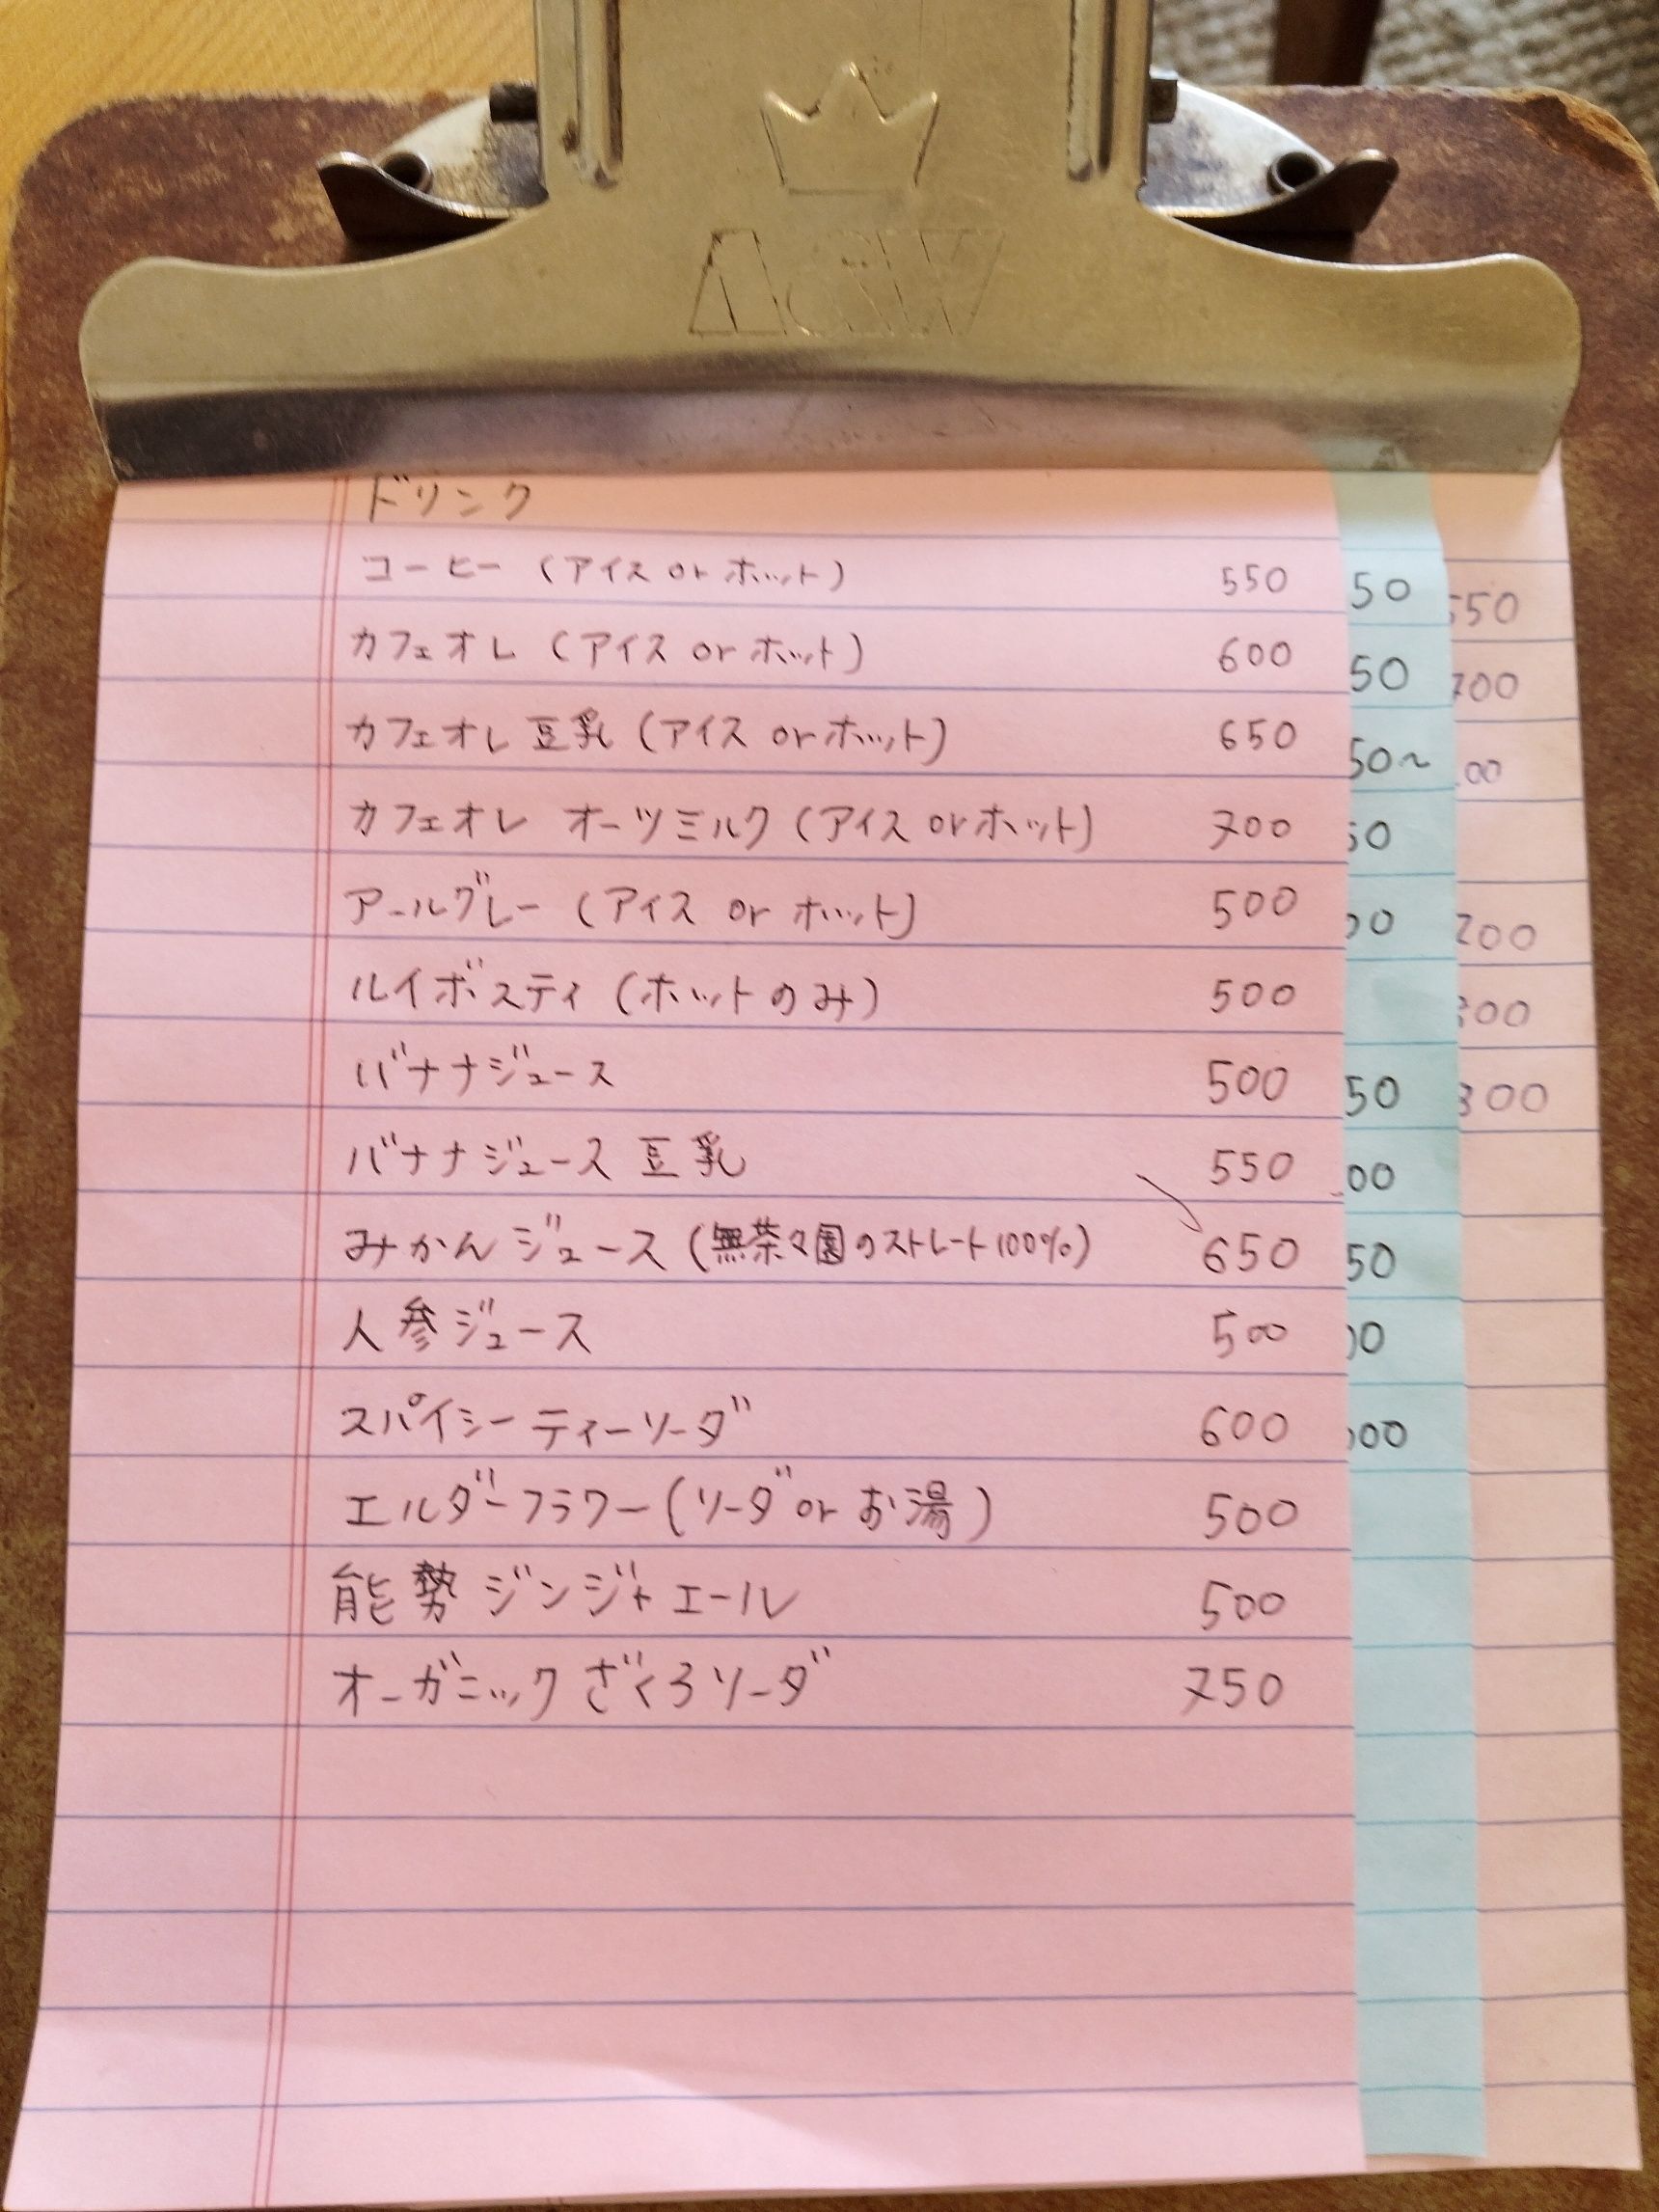 A&W
ドリンク
コーヒー (アイス or ホット) 550
カフェオレ (アイス or ホット) 600
カフェオレ 豆乳 (アイス or ホット) 650
カフェオレ オーツミルク (アイス or ホット) 700
アールグレー (アイス or ホット) 500
ルイボスティ (ホットのみ) 500
バナナジュース 500
バナナジュース 豆乳 550
みかんジュース (無茶々園のストレート100%) 650
人参ジュース 500
スパイシーティーソーダ 600
エルダーフラワー (ソーダ or お湯) 500
能勢ジンジャエール 500
オーガニックざくろソーダ 750
50
50
50~
50
00
50
00
50
00
000
550
700
00
200
300
800